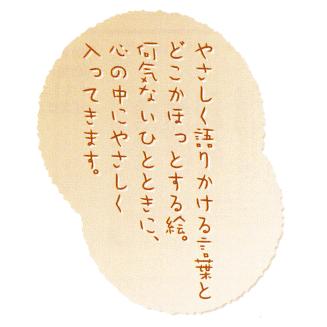 やさしく語りかける言葉と
どこかほっとする絵。
何気ないひとときに、
心の中にやさしく
入ってきます。